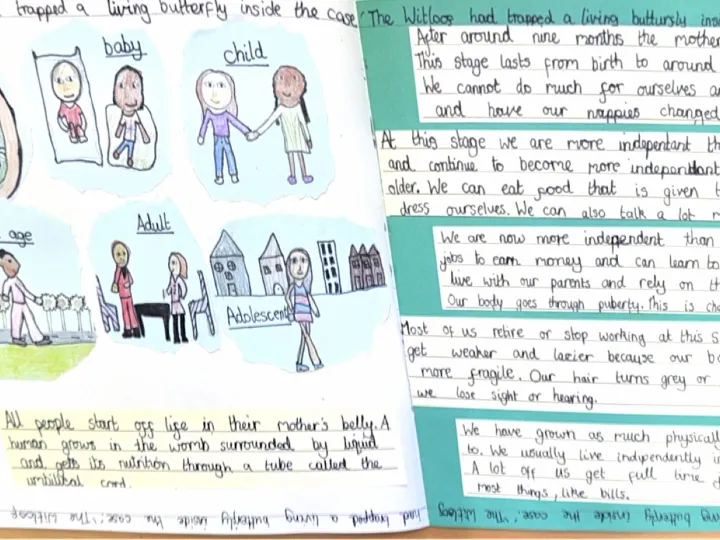 trapped a living butterfly inside the case
baby
child
age
Adult
Adolescent
All people start off life in their mother's belly. A
human grows in the womb surrounded by liquid
and gets its nutrition through a tube called the
umbilical cord.
had trapped a living butterfly inside the case." The Witloos
"The Witloos had trapped a living butterfly insi
After around nine months the mother
This stage lasts from birth to around
We cannot do much for ourselves a
and have our nappies changed
At this stage we are more independant th
and continue to become more independant
older. We can eat food that is given t
dress ourselves. We can also talk a lot m
We are now more independent than
jobs to earn money and can learn to
live with our parents and rely on th
Our body goes through puberty. This is ch
Most of us retire or stop working at this s
get weaker and lazier because our bo
more fragile. Our hair turns grey or
we lose sight or hearing.
We have grown as much physicall
to. We usually live indipendently i
A lot off us get full time
most things, like bills.
ng butterfly inside the case." "The Witloos